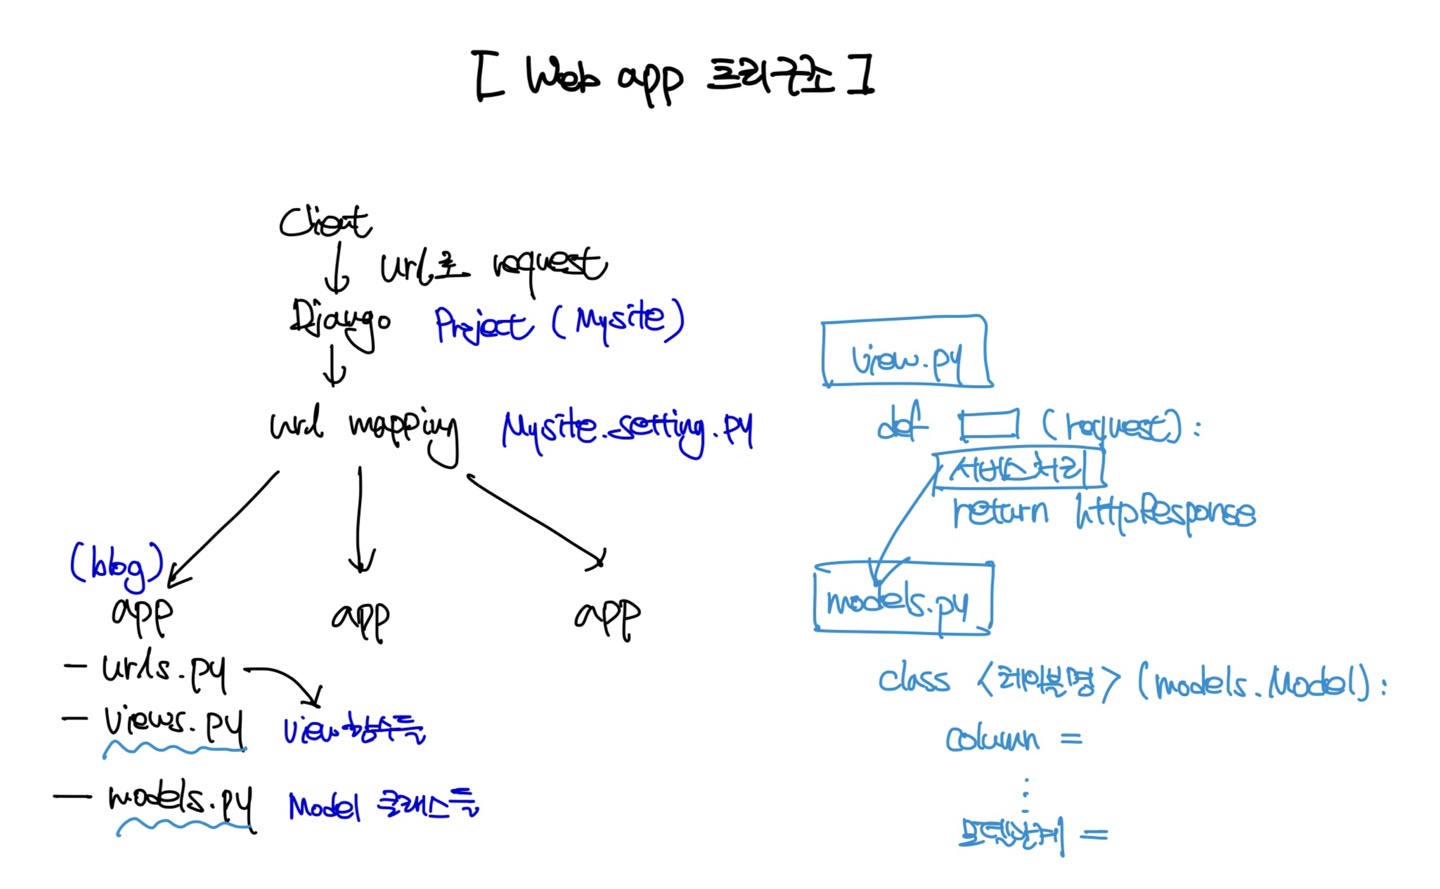 [ Web app 트리구조 ]
Client
url로 request
Django Project (Mysite)
url mapping Mysite.setting.py
(blog)
app app app
- urls.py
- views.py view함수들
- models.py Model 클래스들
view.py
def (request):
서비스처리
return httpResponse
models.py
class <테이블명> (models.Model):
column =
⋮
=